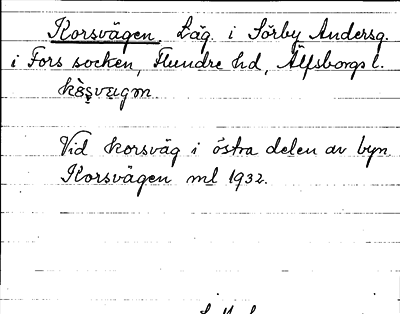 Korsvägen. Läg. i Sörby Andersg.
i Fors socken, Flundre hd, Älfsborgs l.
Vid korsväg i östra delen av byn.
Korsvägen ml 1932.